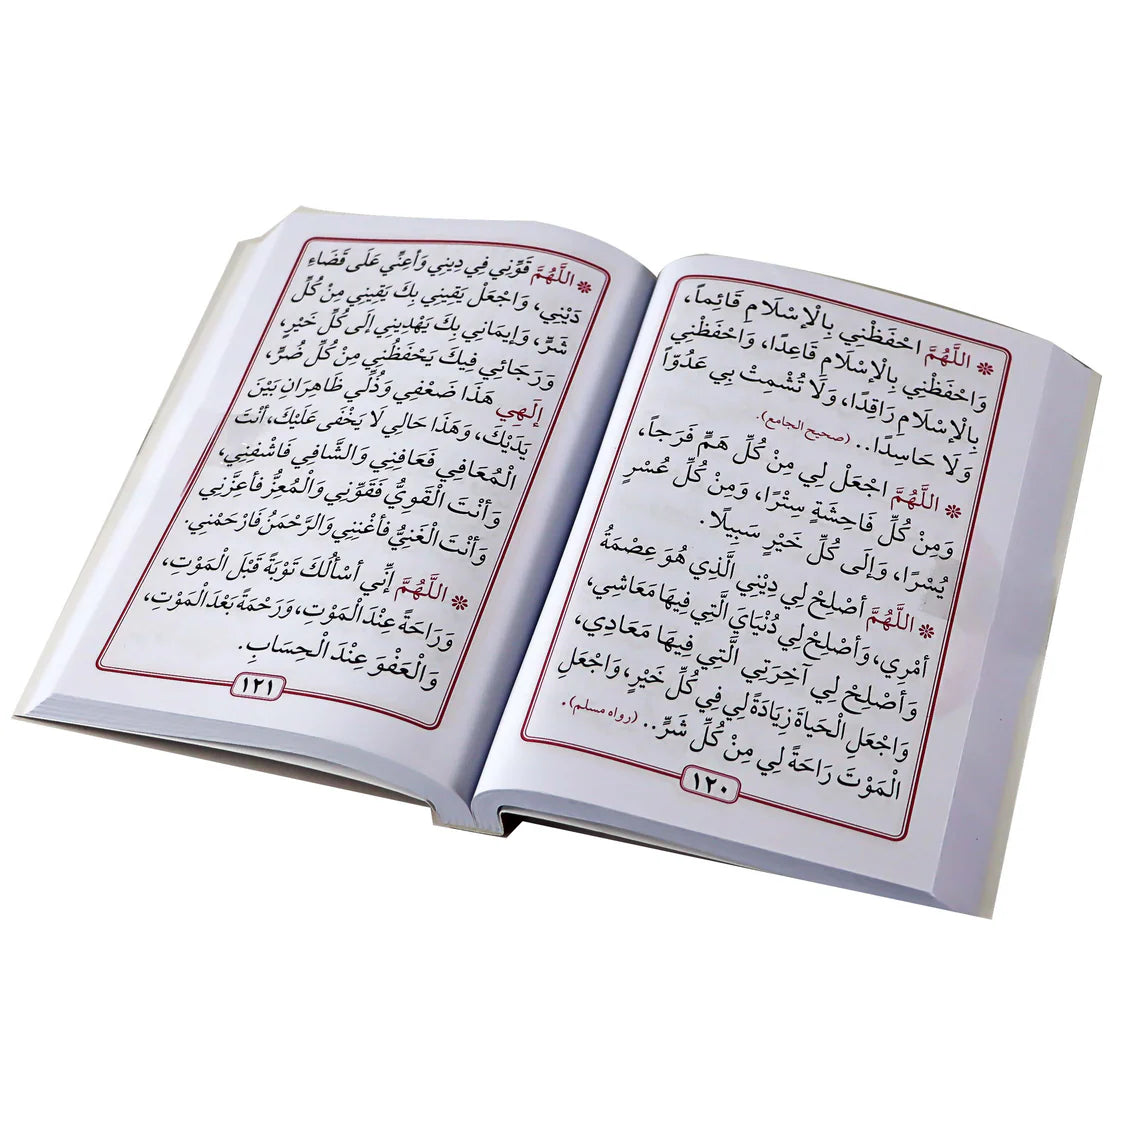 ❊ اللَّهُمَّ احْفَظْنِي بِالْإِسْلَامِ قَائِماً،
وَاحْفَظْنِي بِالْإِسْلَامِ قَاعِدًا، وَاحْفَظْنِي
بِالْإِسْلَامِ رَاقِدًا، وَلَا تُشْمِتْ بِي عَدُوّاً
وَلَا حَاسِدًا.. (صحيح الجامع).
❊ اللَّهُمَّ اجْعَلْ لِي مِنْ كُلِّ هَمٍّ فَرَجاً،
وَمِنْ كُلِّ فَاحِشَةٍ سِتْرًا، وَمِنْ كُلِّ عُسْرٍ
يُسْرًا، وَإِلَى كُلِّ خَيْرٍ سَبِيلًا.
❊ اللَّهُمَّ أصْلِحْ لِي دِيْنِي الَّذِي هُوَ عِصْمَةُ
أمْرِي، وَأصْلِحْ لِي دُنْيَايَ الَّتِي فِيهَا مَعَاشِي،
وَأصْلِحْ لِي آخِرَتِي الَّتِي فِيهَا مَعَادِي،
وَاجْعَلِ الْحَيَاةَ زِيَادَةً لِي فِي كُلِّ خَيْرٍ، وَاجْعَلِ
الْمَوْتَ رَاحَةً لِي مِنْ كُلِّ شَرٍّ.. (رواه مسلم).
١٢٠
❊ اللَّهُمَّ قَوِّنِي فِي دِينِي وَأعِنِّي عَلَى قَضَاءِ
دَيْنِي، وَاجْعَلْ يَقِينِي بِكَ يَقِينِي مِنْ كُلِّ
شَرٍّ، وَإيمَانِي بِكَ يَهْدِينِي إلَى كُلِّ خَيْرٍ،
وَرَجَائِي فِيكَ يَحْفَظُنِي مِنْ كُلِّ ضُرٍّ،
إلَهِي هَذَا ضَعْفِي وَذُلِّي ظَاهِرَانِ بَيْنَ
يَدَيْكَ، وَهَذَا حَالِي لَا يَخْفَى عَلَيْكَ، أنْتَ
الْمُعَافِي فَعَافِنِي وَالشَّافِي فَاشْفِنِي،
وَأنْتَ الْقَوِيُّ فَقَوِّنِي وَالْمُعِزُّ فأعزَّنِي
وَأنْتَ الْغَنِيُّ فأغْنِنِي وَالرَّحْمَنُ فَارْحَمْنِي.
❊ اللَّهُمَّ إنِّي أسْألُكَ تَوْبَةً قَبْلَ الْمَوْتِ،
وَرَاحَةً عِنْدَ الْمَوْتِ، وَرَحْمَةً بَعْدَ الْمَوْتِ،
وَالْعَفْوَ عِنْدَ الْحِسَابِ.
١٢١